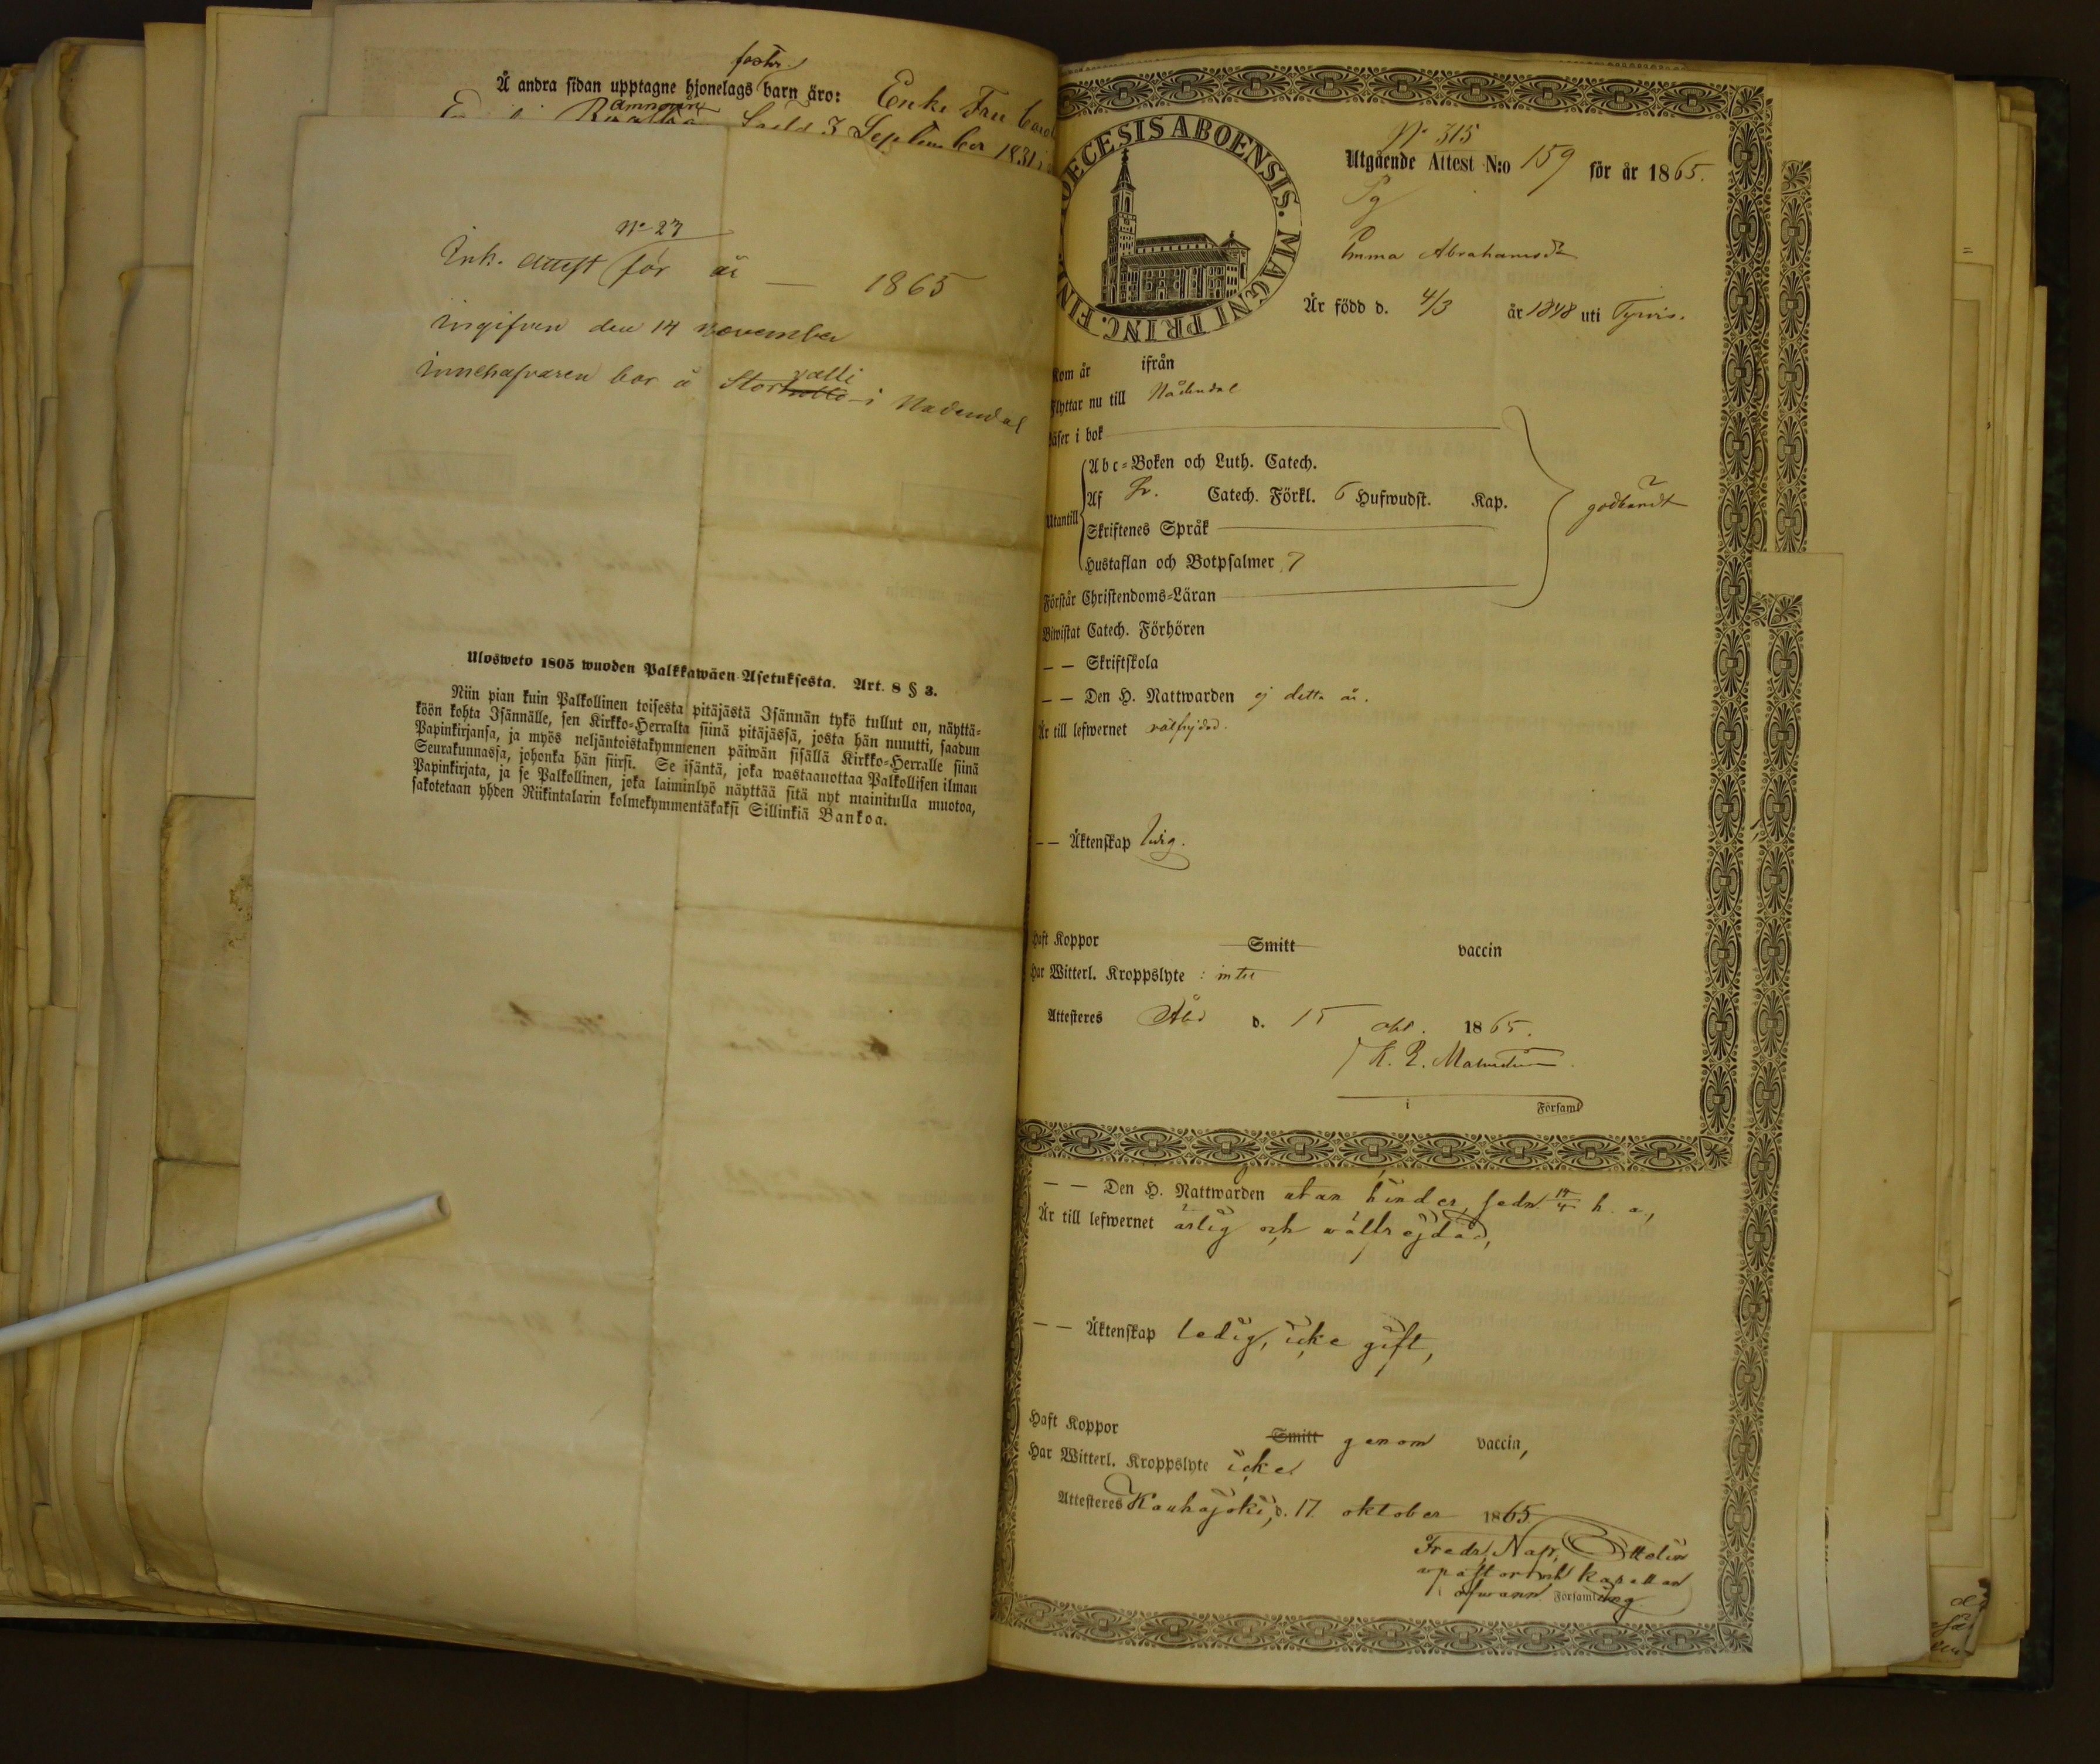 fostr.
Å andra sidan upptagne hjonelags barn äro: Enke Fru
3 September 1831
No 27
Ink. attest för år — 1865
Ingifven den 14 november
Innehafvaren bor å Stor
välli
i Nådendal
Ulosweto 1805 wuoden Palkkawäen Asetuksesta. Art. 8 § 3.
Niin pian kuin Palkollinen toisesta pitäjästä Isännän tykö tullut on, näyttä-
köön kohta Isännälle, sen Kirkko-Herralta siinä pitäjässä, josta hän muutti, saadun
Papinkirjansa, ja myös neljäntoistakymmenen päiwän sisällä Kirkko-Herralle siinä
Seurakunnassa, johonka hän siirsi. Se isäntä, joka wastaanottaa Palkollisen ilman
Papinkirjata, ja se Palkollinen, joka laiminlyö näyttää sitä nyt mainitulla muotoa,
sakotetaan yhden Riikintalarin kolmekymmentäkaksi Sillinkiä Bankoa.
ŒCESIS ABOENSIS. MAGNI PRINC. FIN
No 315
Utgående Attest N:o 159 för år 1865.
Pg
Emma Abrahamsdr
Är född d. 4/3 år 1848 uti Tyrvis.
Kom år ifrån
Flyttar nu till Nådendal
Läser i bok
Utantill
Abc-Boken och Luth. Catech.
Af Sv. Catech. Förkl. 6 Hufwudst. Kap.
Skriftenes Språk
Hustaflan och Botpsalmer 7
godkändt
Förstår Christendoms-Läran
Biwistat Catech. Förhören
— — Skriftskola
— — Den H. Nattwarden ej detta år.
Är till lefwernet välfrejdad.
— — Äktenskap ledig.
Haft Koppor Smitt vaccin
Har Witterl. Kroppslyte : intet
Attesteres Åbo d. 15 okt. 1865.
i Församl
— — Den H. Nattwarden utan hinder, sedn. h. a.,
Är till lefwernet ärlig och wällfräjdad,
— — Äktenskap ledig, icke gift,
Haft Koppor Smitt genom vaccin,
Har Witterl. Kroppslyte icke.
Attesteres Kauhajoki, d. 17 oktober 1865
Fredr. Ottelin
vpastor och kapellan
i ofwann. Församling